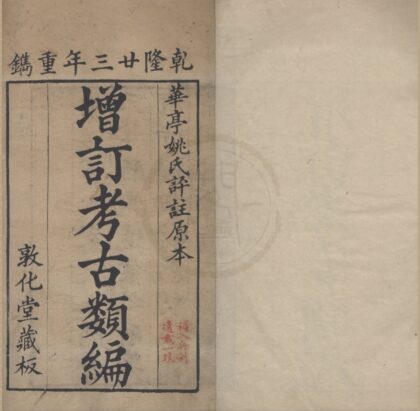 乾隆廿三年重鐫
華亭姚氏評註原本
增訂考古類編
敦化堂藏板